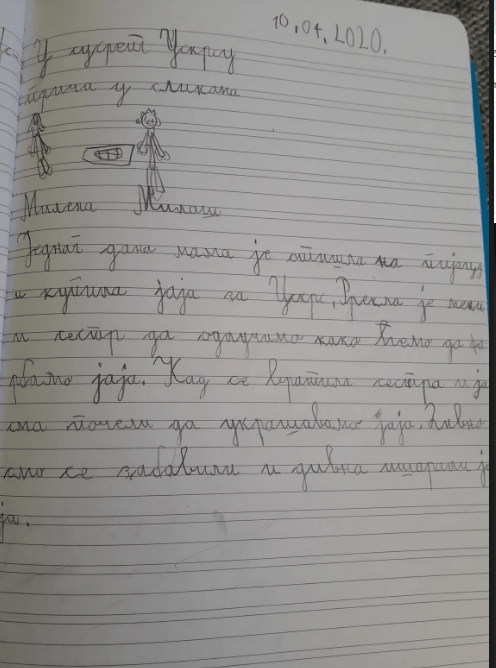 10.04.2020.
У сусрет Ускрсу
прича у сликама
Милена Милаш
Једног дана мама је отишла на пијацу
и купила јаја за Ускрс, Рекла је мени
и сестри да одлучимо како ћемо да фа
рбамо јаја. Кад се вратила сестра и ја
смо почели да украшавамо јаја. Дивно
смо се забавили и дивна ишарали ја
ја.